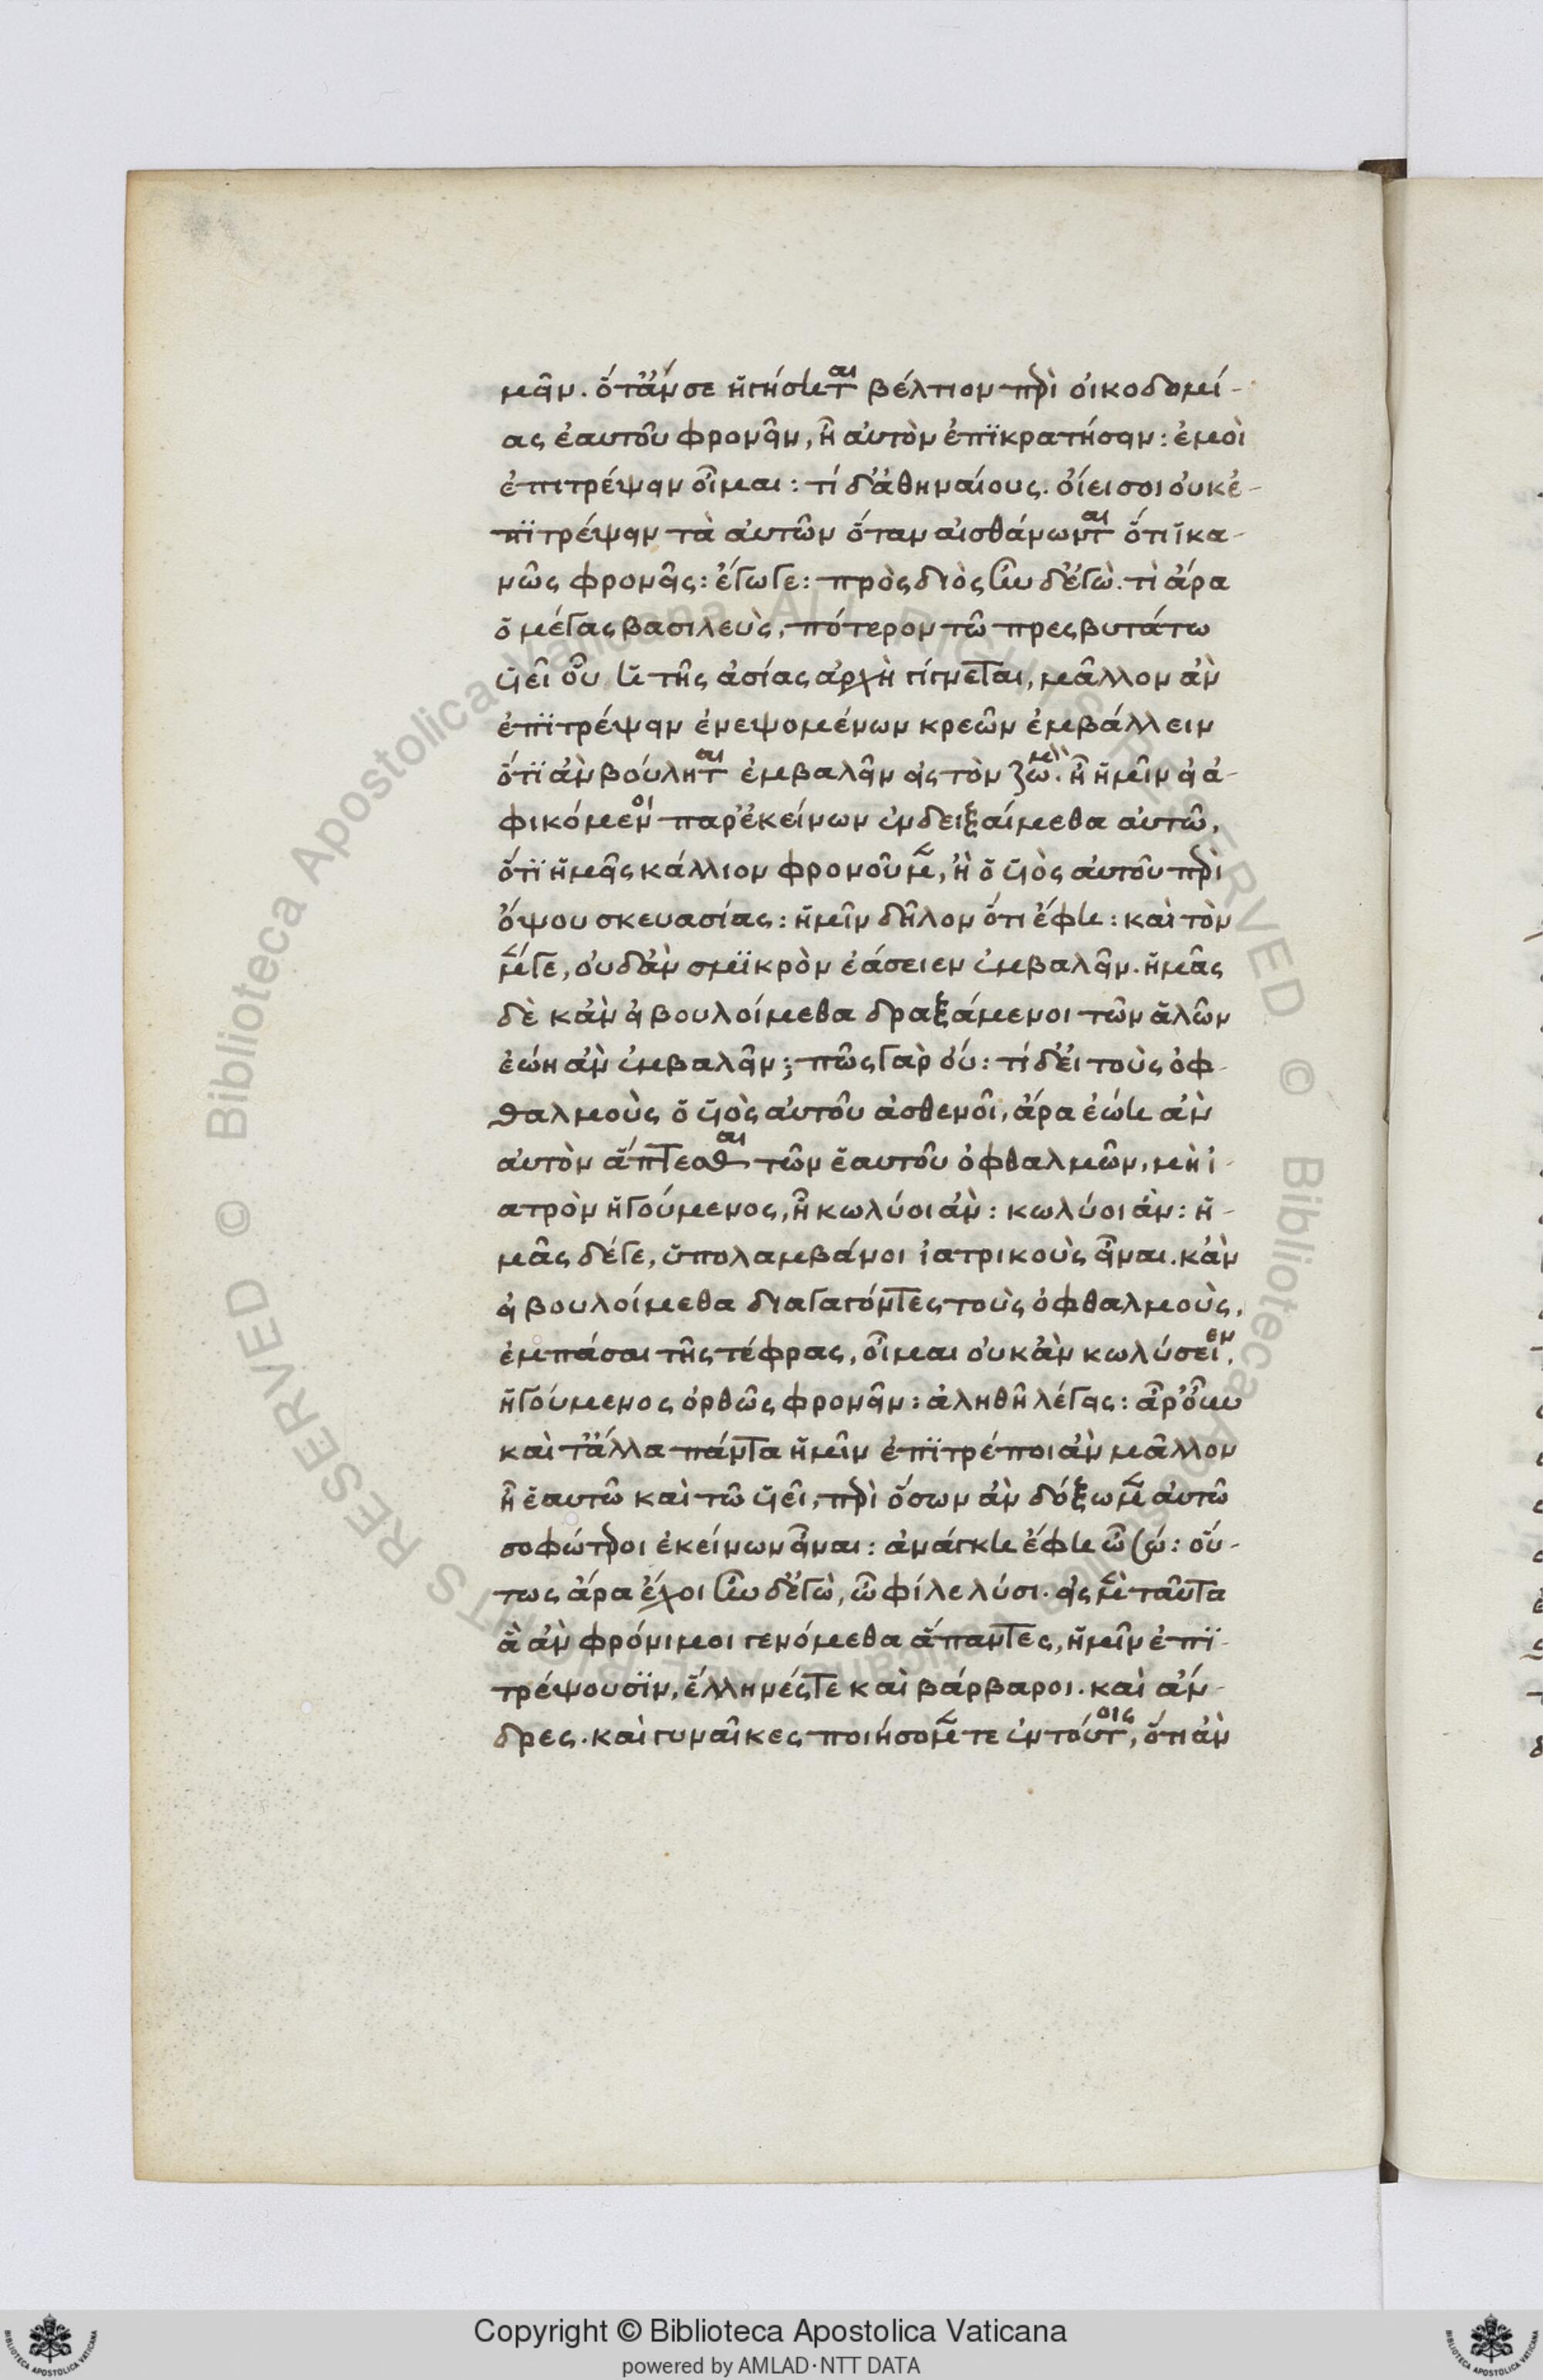 μεῖν. ὅτἄν σε ἡγήσηται βέλτιον περὶ οἰκοδομί-
ας ἑαυτοῦ φρονεῖν, ἢ αὐτὸν ἐπϊκρατήσειν: ἐμοὶ
ἐπιτρέψειν οἶμαι: τί δ' ἀθηναίους. οἴει σοι οὐκ ἐ-
πϊτρέψειν τὰ αὐτῶν ὅταν αἰσθάνωνται ὅτι ἱκα-
νῶς φρονεῖς: ἔγωγε: πρὸς διὸς ἦν δ' ἐγὼ. τὶ ἄρα
ὁ μέγας βασιλεὺς, πότερον τῶ πρεσβυτάτω
υἱεῖ οὗ ἡ τῆς ἀσίας ἀρχὴ γίγνεται, μᾶλλον ἂν
ἐπϊτρέψειν ἑνεψομένων κρεῶν ἐμβάλλειν
ὅτϊ ἂν βούληται ἐμβαλεῖν εἰς τὸν ζωμὸν. ἢ ἡμῖν εἰ ἀ-
φικόμενοι παρ' ἐκείνων ἐνδειξαίμεθα αὐτῶ,
ὅτϊ ἡμεῖς κάλλιον φρονοῦμεν, ἢ ὁ υἱὸς αὐτοῦ περὶ
ὄψου σκευασίας: ἡμῖν δῆλον ὅτι ἔφη: καὶ τὸν
μέν γε, οὐδ' ἂν σμϊκρὸν ἐάσειεν ἐμβαλεῖν. ἡμᾶς
δὲ κἂν εἰ βουλοίμεθα δραξάμενοι τῶν ἁλῶν
ἐώη ἂν ἐμβαλεῖν; πῶς γὰρ οὔ: τί δ' εἰ τοὺς ὀφ-
θαλμοὺς ὁ υἱὸς αὐτοῦ ἀσθενοῖ, ἄρα ἐώη ἂν
αὐτὸν ἅπτεσθαι τῶν ἑαυτοῦ ὀφθαλμῶν, μὴ ἰ-
ατρὸν ἡγούμενος, ἢ κωλύοι ἂν: κωλύοι ἄν: ἡ-
μᾶς δέ γε, ὑπολαμβάνοι ἰατρικοὺς εἶναι. κἂν
εἰ βουλοίμεθα διαγαγόντες τοὺς ὀφθαλμοὺς,
ἐμπάσαι τῆς τέφρας, οἶμαι οὐκ ἂν κωλύσειεν,
ἡγούμενος ὀρθῶς φρονεῖν: ἀληθῆ λέγεις: ἆρ' οὖν
καὶ τἄλλα πάντα ἡμῖν ἐπϊτρέποι ἂν μᾶλλον
ἢ ἑαυτῶ καὶ τῶ υἱεῖ, περὶ ὅσων ἂν δόξωμεν αὐτῶ
σοφώτεροι ἐκείνων εἶναι: ἀνάγκη ἔφη ὦ σώ: οὕ-
τως ἄρα ἔχοι ἦν δ' ἐγὼ, ὦ φίλε λύσι. εἰς μὲν ταῦτα
ἃ ἂν φρόνιμοι γενόμεθα ἅπαντες, ἡμῖν ἐπϊ-
τρέψουσϊν, ἕλληνές τε καὶ βάρβαροι. καὶ ἄν-
δρες. καὶ γυναῖκες ποιήσομέν τε ἐν τούτοις, ὅτι ἂν
Copyright © Biblioteca Apostolica Vaticana
powered by AMLAD·NTT DATA